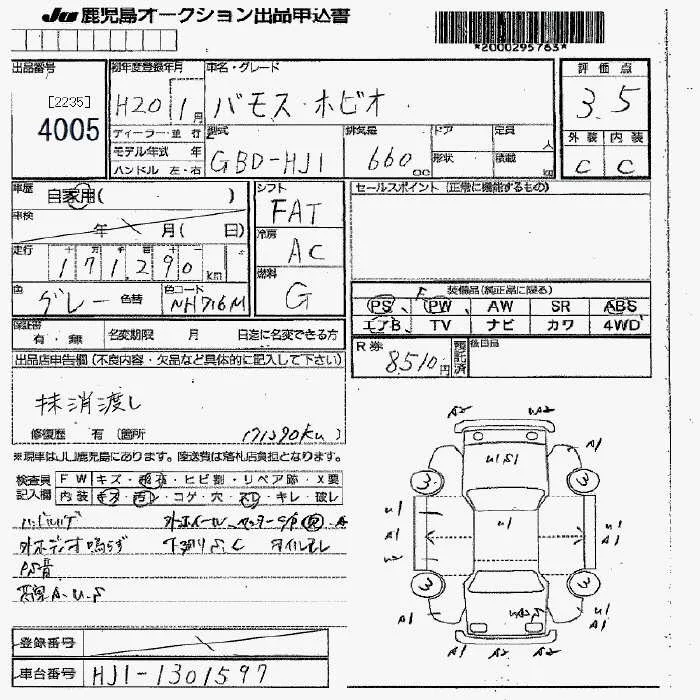 JU 鹿児島オークション出品申込書
*2000295763*
出品番号
[2235]
4005
初年度登録年月
H20 1月
車名・グレード
バモス・ホビオ
評価点
3.5
ディーラー・並行
モデル年式 年
ハンドル 左・右
型式
GBD-HJ1
排気量
660 cc
ドア
形状
定員 人
積載 kg
外装 内装
C C
車歴
自家用( )
車検
年 月( 日)
走行
十 万 千 百 十 一
171,290 km
色
グレー 色替
色コード
NH716M
シフト
FAT
冷房
AC
燃料
G
セールスポイント (正常に機能するもの)
装備品(純正品に限る)
PS PW AW SR ABS
エアB TV ナビ カワ 4WD
保証書
有・無 名変期限 月 日迄に名変できる方
R券
8,510円
預託済
後日品
出品店申告欄(不良内容・欠品など具体的に記入して下さい)
抹消渡し
修復歴 有 (箇所 171290km)
※現車はJU鹿児島にあります。陸送費は落札店負担となります。
検査員
記入欄
FW キズ・飛石・ヒビ割・リペア跡・X要
内装 キズ・汚レ・コゲ・穴・スレ・キレ・破レ
外ホイール
外オーディオ鳴らず 下廻りS,C オイルモレ
PS音
A.U.S
登録番号
車台番号
HJ1-1301597
A2 UA2
A1
U1S1
3 3
U1
U1
A1
U2
U1
A1
3 3
A1
U1
A1
A1 A2 A2